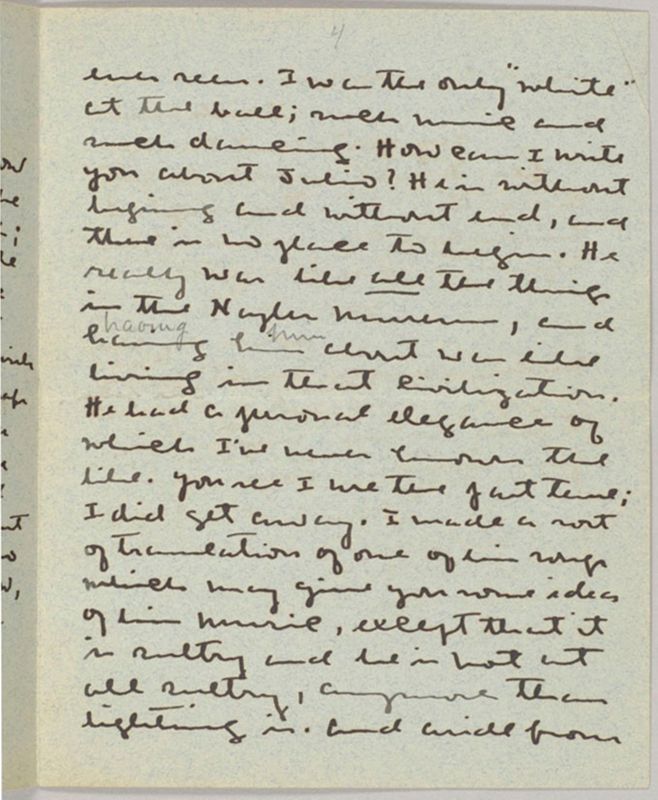 4
ever seen. I was the only "white"
at the ball; such music and
such dancing. How can I write
you about Julio? He is without
begining and without end, and
there is no place to begin. He
really was like all the things
in the Naples Museum, and
having him
having him about was like
living in that civilization.
He had a personal elegance of
which I've never known the
like. you see I use the past tense;
I did get away. I made a sort
of translation of one of his songs
which may give you some idea
of his music, except that it
is sultry and he is not at
all sultry, anymore than
lightning is. And aside from